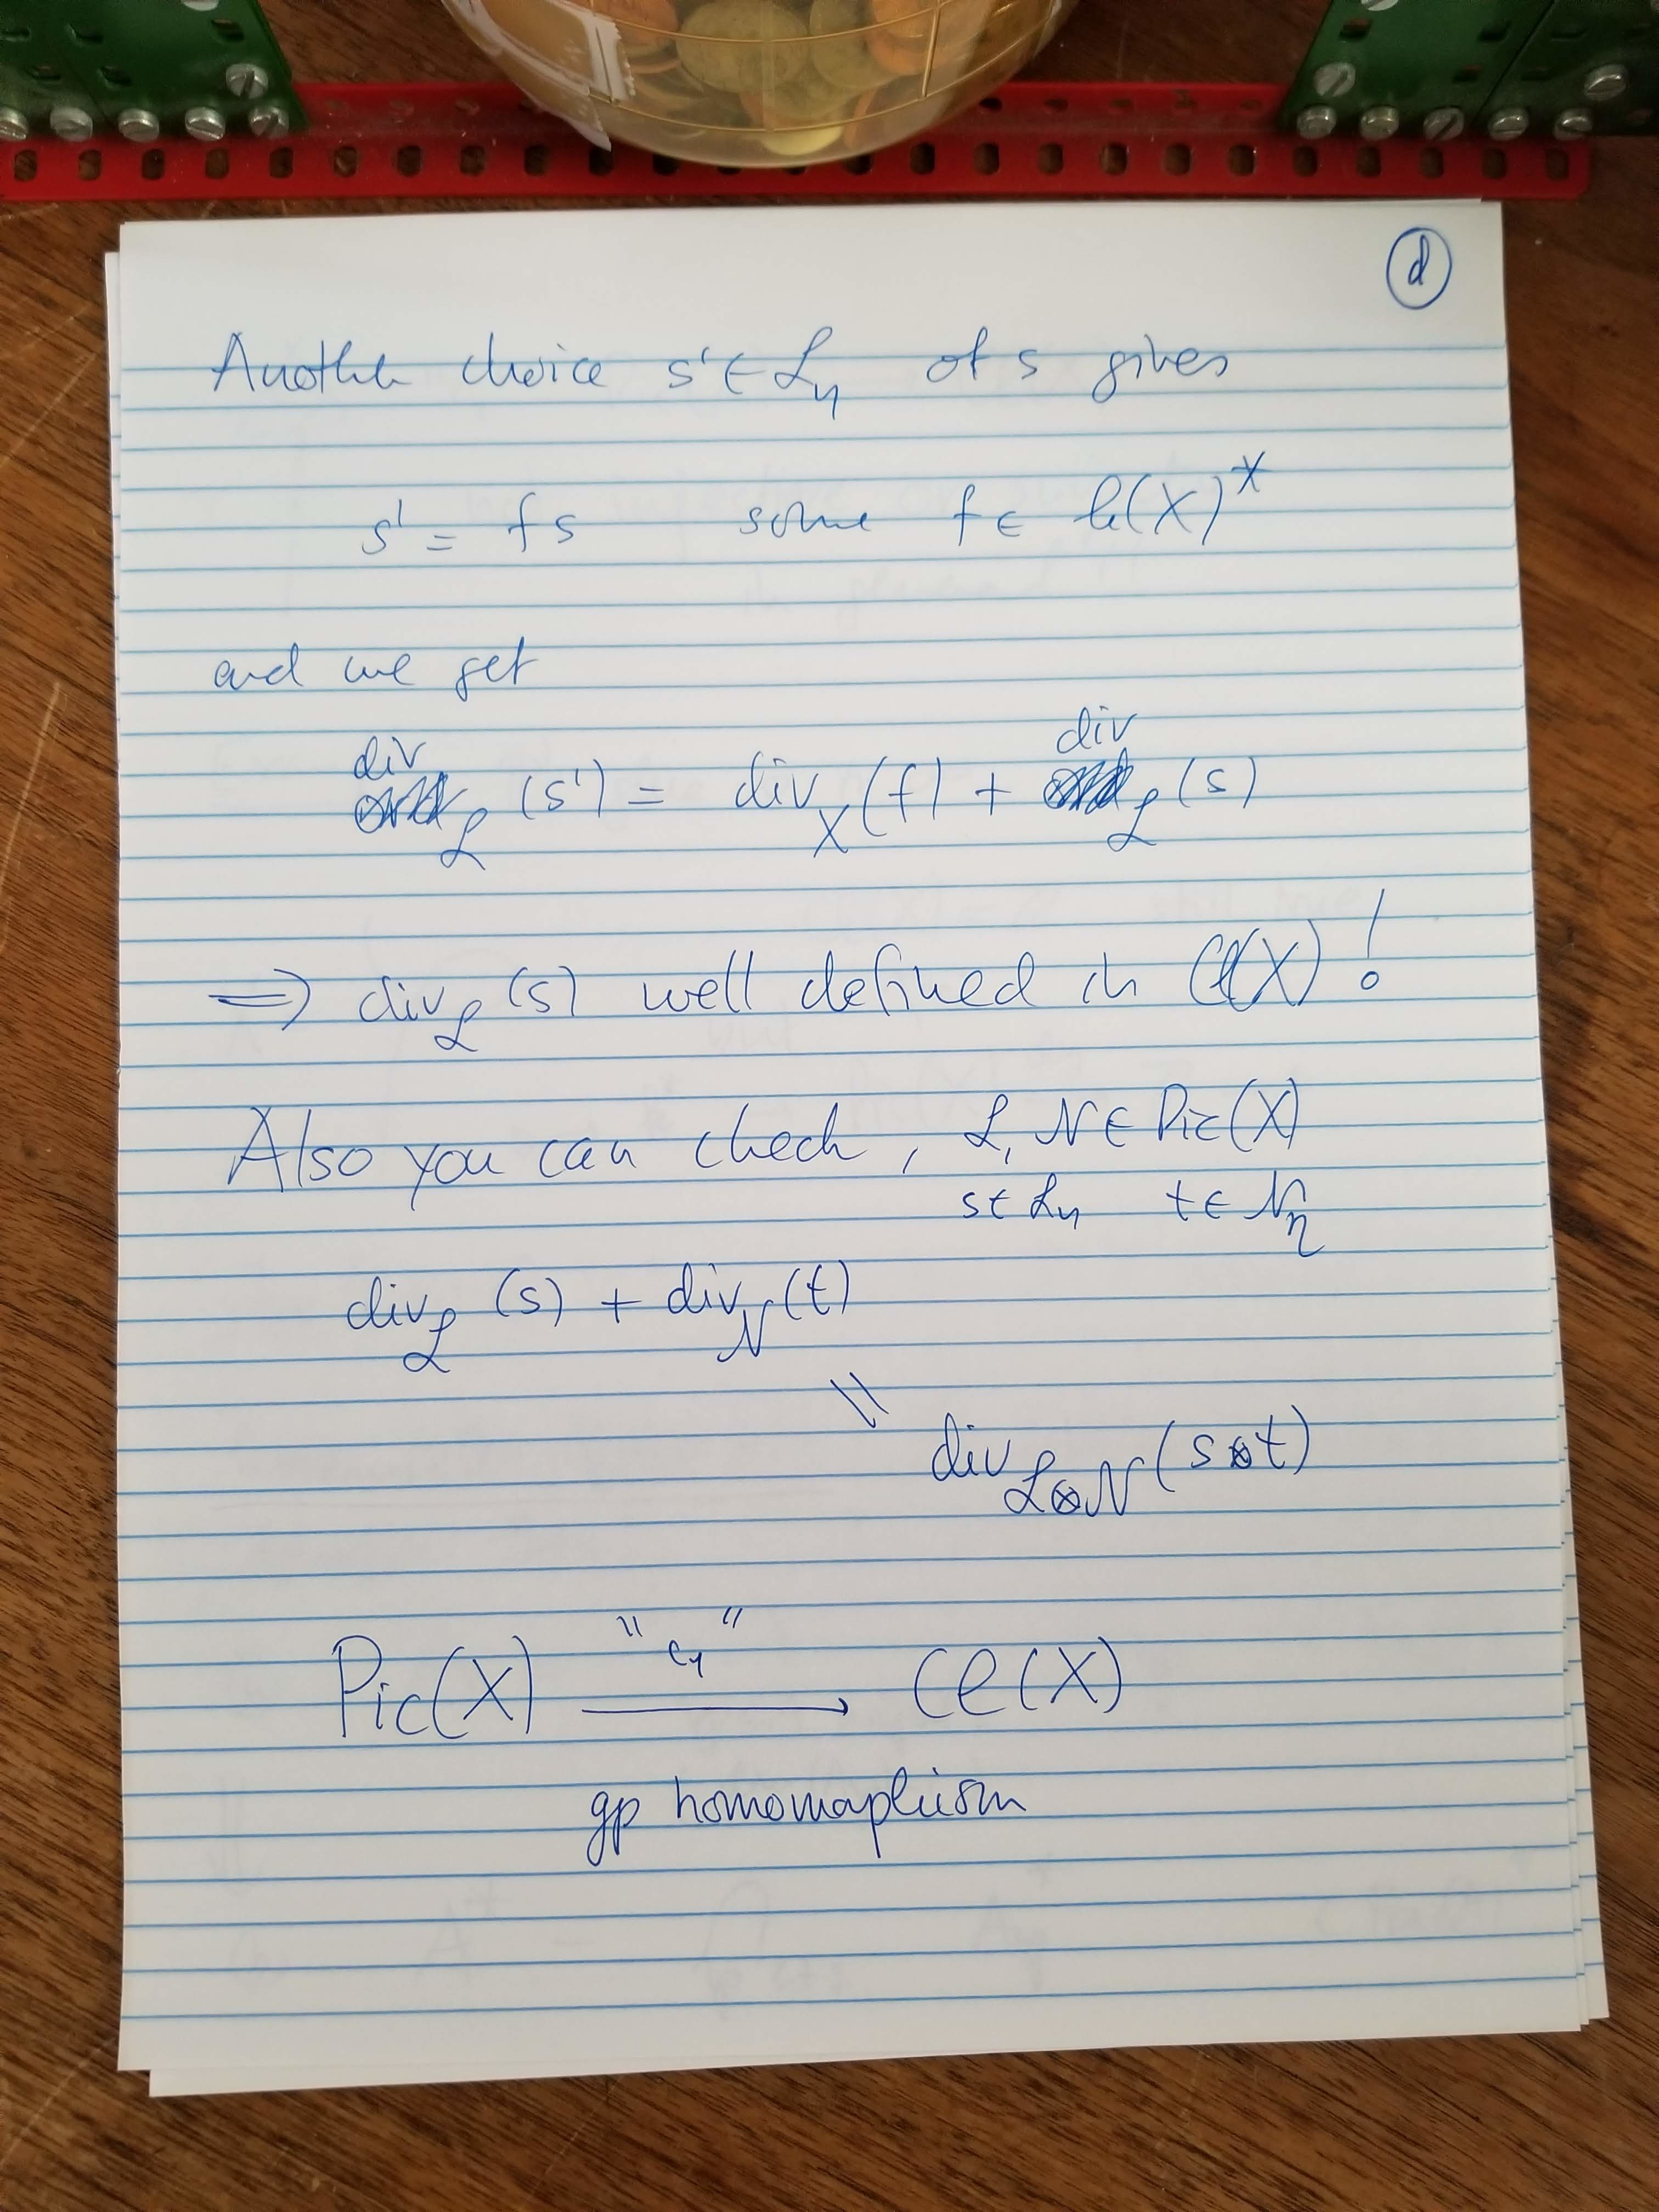 d
Another choice s' ∈ ℒ_η of s gives
s' = f s some f ∈ k(X)*
and we get
div_ℒ (s') = div_X (f) + div_ℒ (s)
⇒ div_ℒ (s) well defined in Cl(X)!
Also you can check, ℒ, N ∈ Pic(X)
s ∈ ℒ_η t ∈ N_η
div_ℒ (s) + div_N (t)
||
div_ℒ⊗N (s⊗t)
Pic(X) "c₁" ⟶ Cl(X)
gp homomorphism